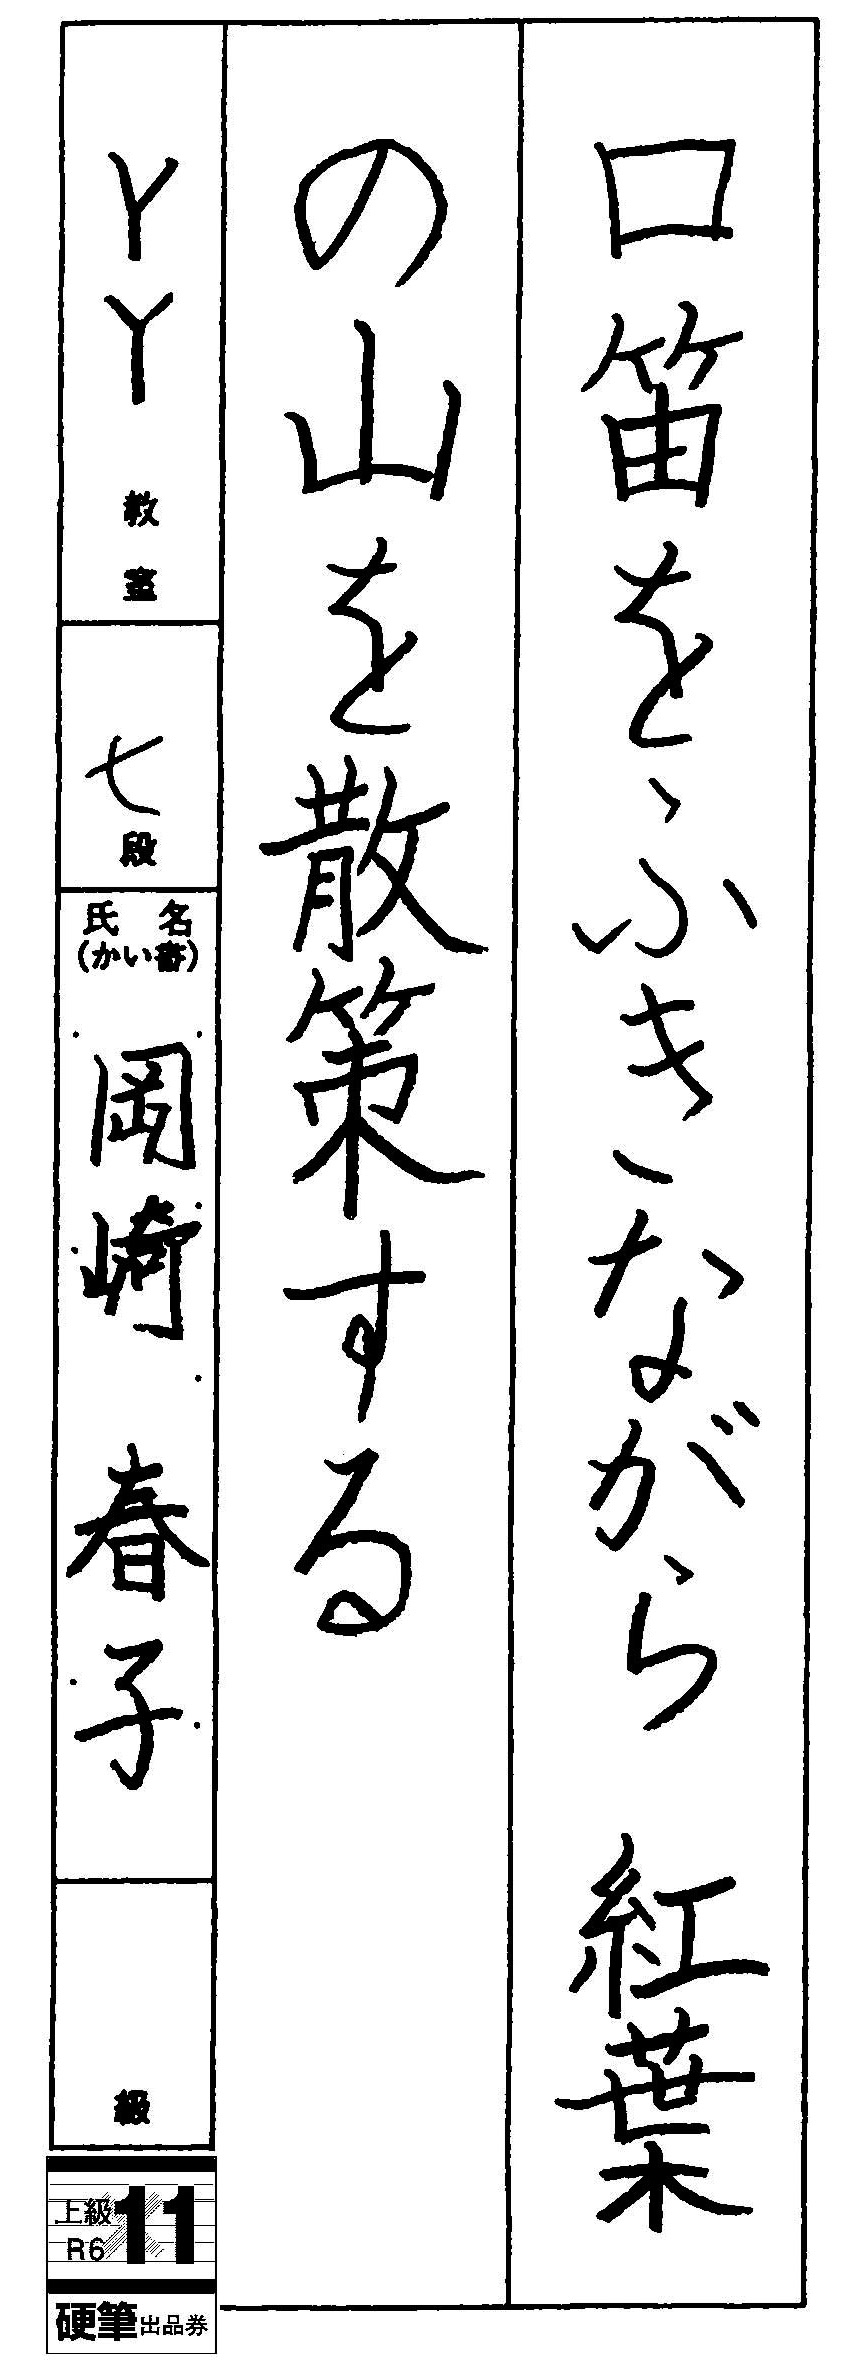 口笛をふきながら 紅葉
の山を散策する
YY教室
七段
氏名
(かい書)
岡崎 春子
級
上級
R6
11
硬筆出品券